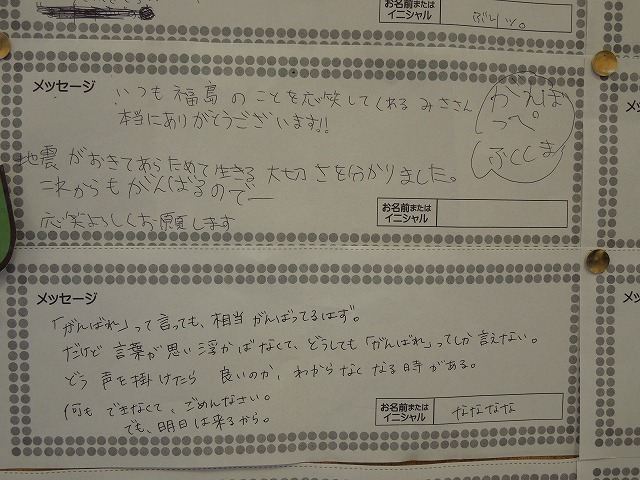 お名前または
イニシャル
ぶりっ。
メッセージ
いつも福島のことを応笑してくれるみささん
本当にありがとうございます!!
がんば
っぺ
ふくしま
地震がおきてあらためて生きる大切さを分かりました。
これからもがんばるのでー
応笑よろしくお願します
お名前または
イニシャル
メッセージ
「がんばれ」って言っても、相当がんばってるはず。
だけど言葉が思い浮かばなくて、どうしても「がんばれ」ってしか言えない。
どう声を掛けたら良いのか、わからなくなる時がある。
何もできなくて、ごめんなさい。
でも、明日は来るから。
お名前または
イニシャル
ななななな
メッ
メッ